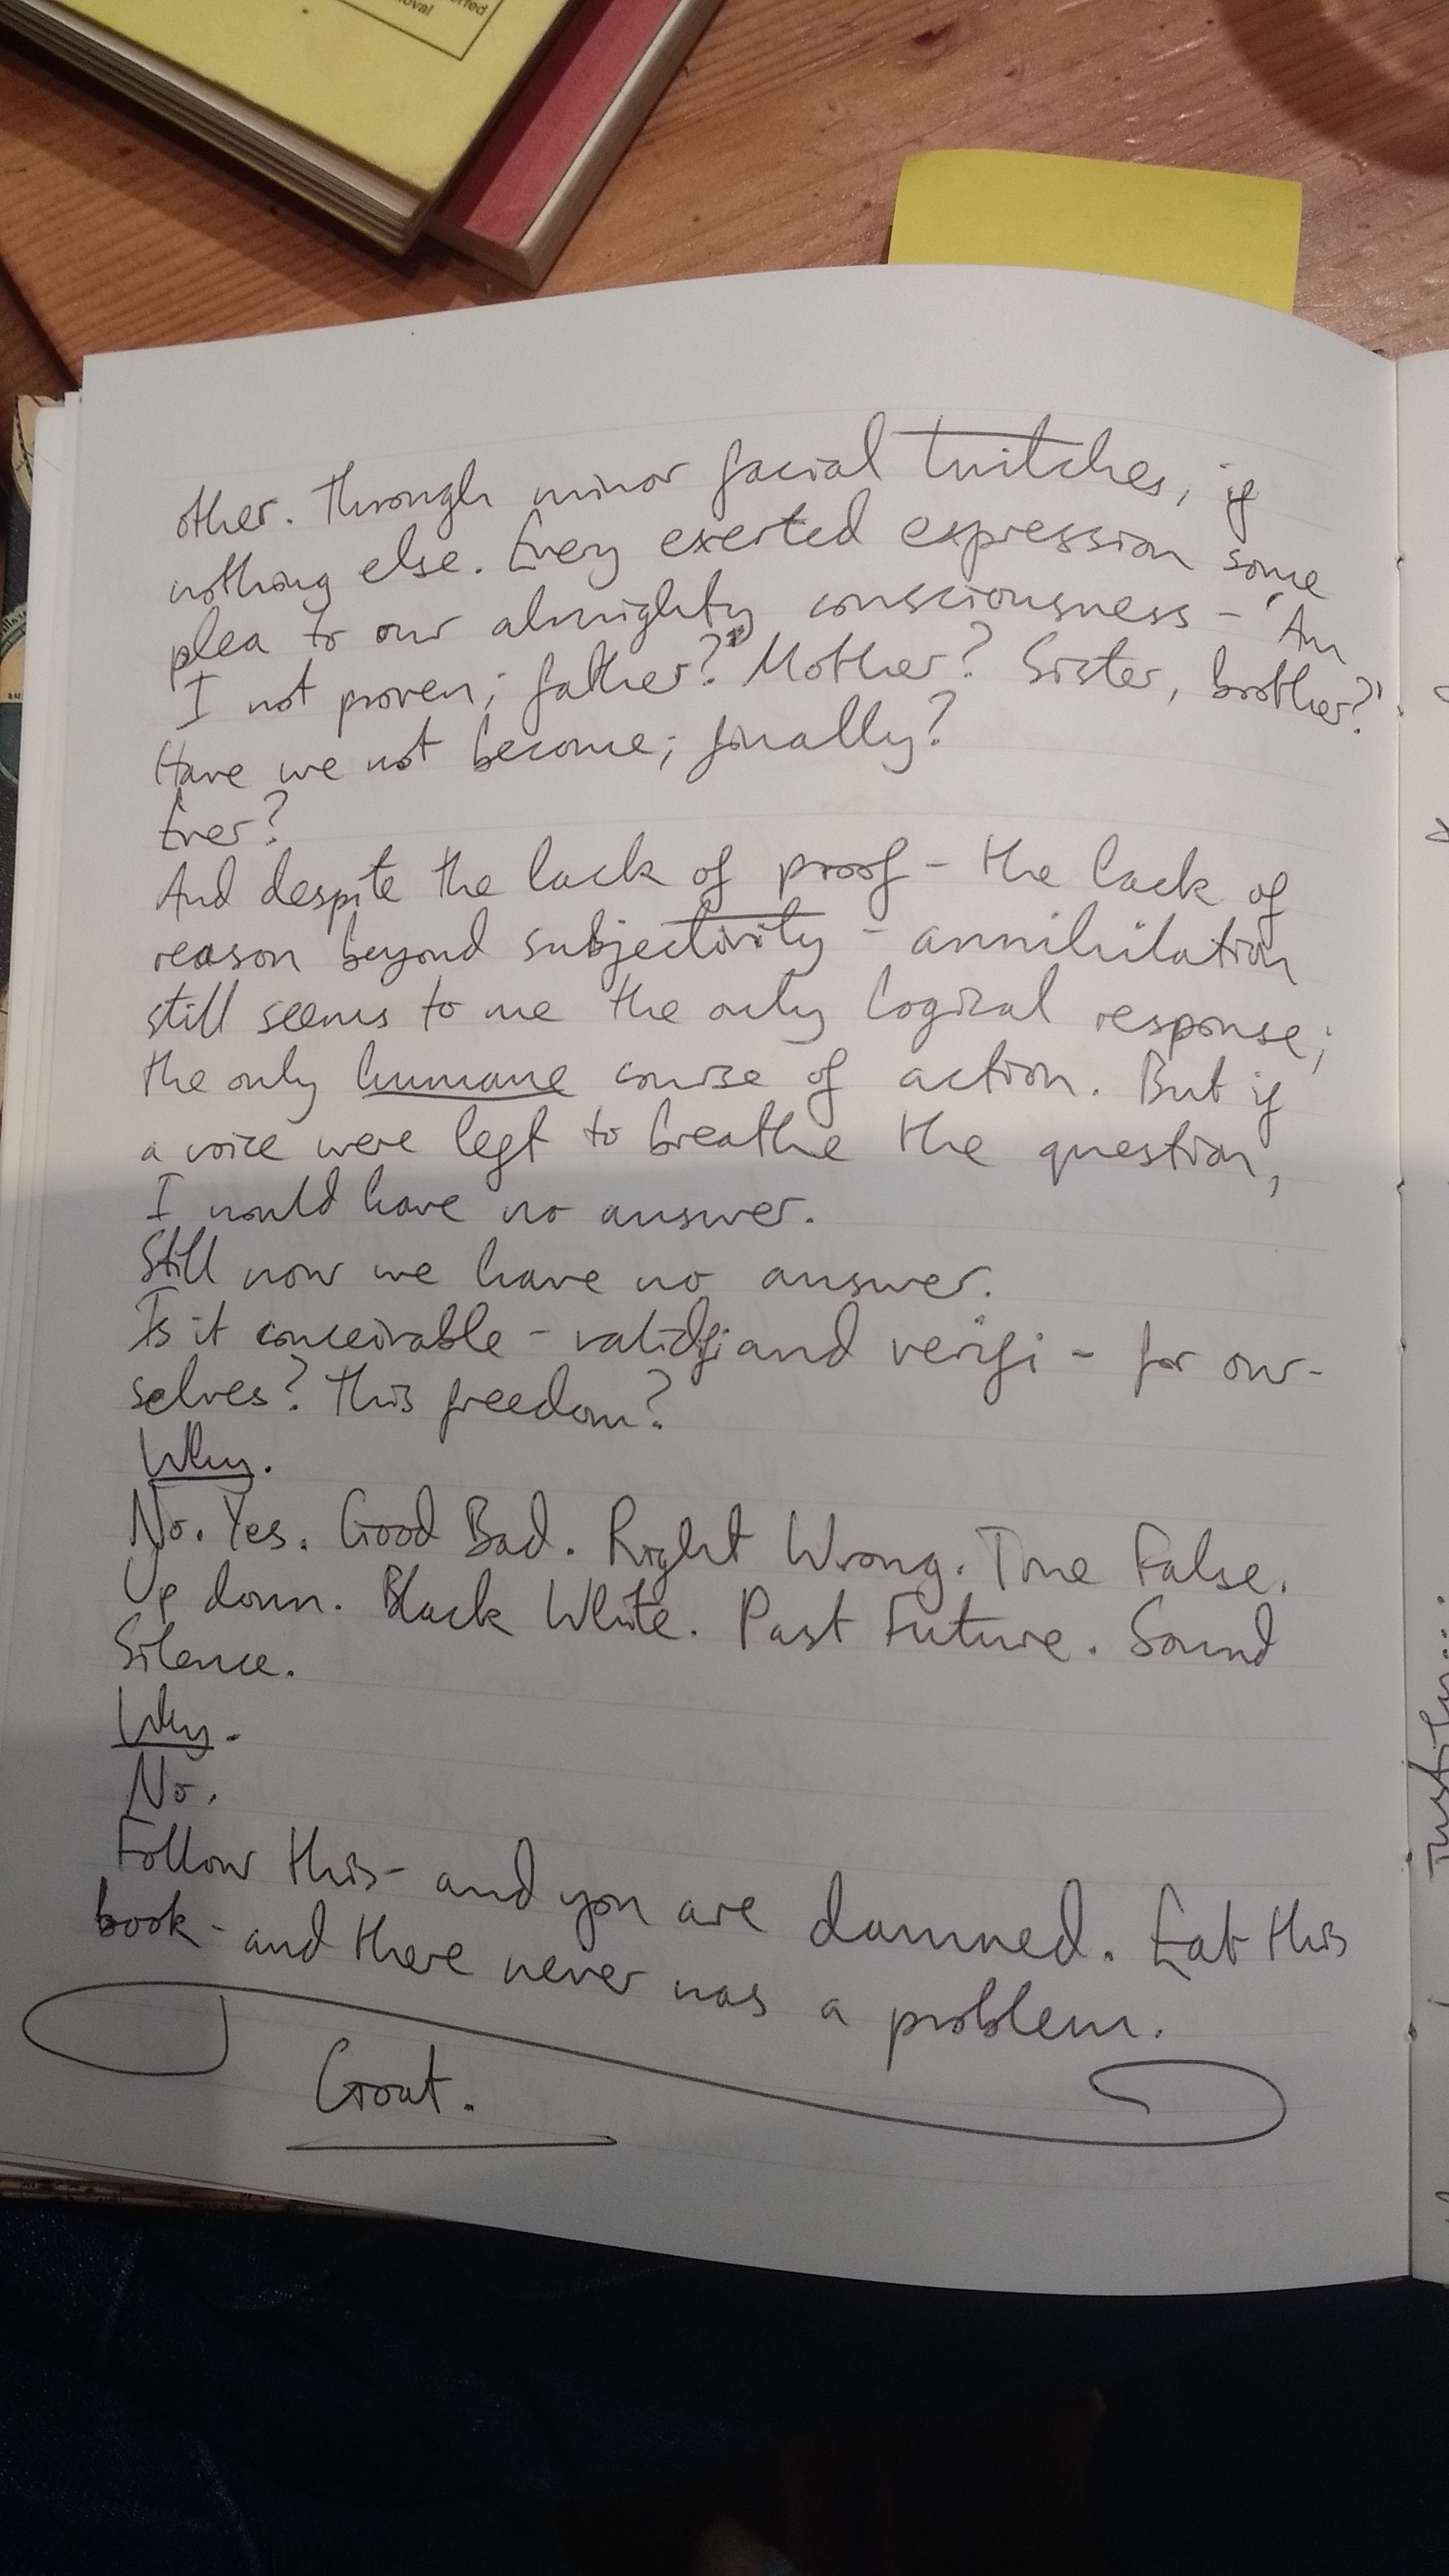 other. Through minor facial twitches, if
nothing else. Every exerted expression some
plea to our almighty consciousness - 'Am
I not proven; father? Mother? Sister, brother?'
Have we not become; finally?
Ever?
And despite the lack of proof - the lack of
reason beyond subjectivity - annihilation
still seems to me the only logical response;
the only humane course of action. But if
a voice were left to breathe the question,
I would have no answer.
Still now we have no answer.
Is it conceivable - and - for our-
selves? This freedom?
Why.
No. Yes. Good Bad. Right Wrong. True False.
Up down. Black White. Past Future. Sound
Silence.
Why.
No.
Follow this - and you are damned. Eat this
book - and there never was a problem.